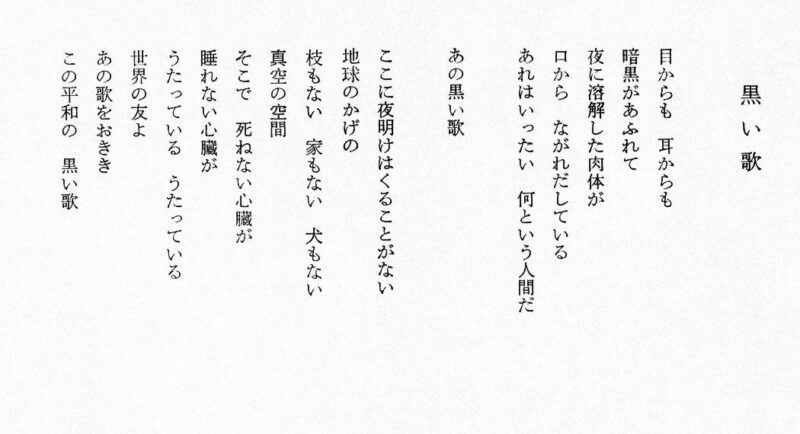 黒い歌
目からも　耳からも
暗黒があふれて
夜に溶解した肉体が
口から　ながれだしている
あれはいったい　何という人間だ
あの黒い歌
ここに夜明けはくることがない
地球のかげの
枝もない　家もない　犬もない
真空の空間
そこで　死ねない心臓が
睡れない心臓が
うたっている　うたっている
世界の友よ
あの歌をおきき
この平和の　黒い歌